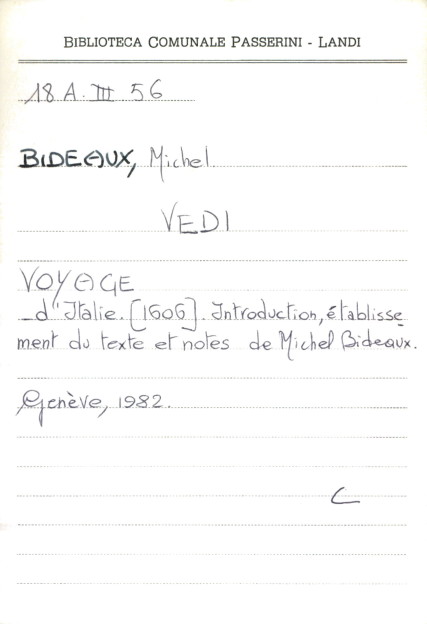 BIBLIOTECA COMUNALE PASSERINI - LANDI
18 A. III 56
BIDEAUX, Michel
VEDI
VOYAGE
_d'Italie. [1606]. Introduction, établisse_
ment du texte et notes de Michel Bideaux.
Genève, 1982.
C